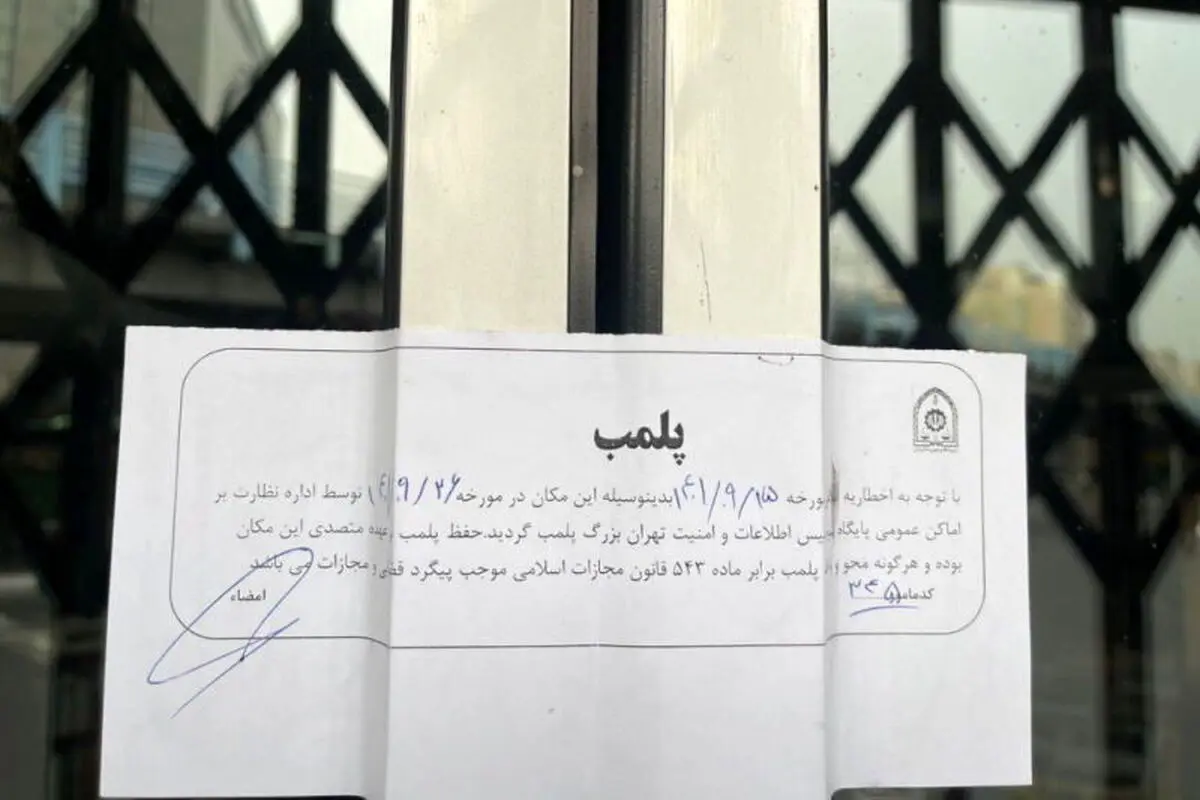 پلمب
با توجه به اخطاریه مورخه ۱۴۰۱/۹/۱۵ بدینوسیله این مکان در مورخه ۱۴۰۱/۹/۲۶ توسط اداره نظارت بر
اماکن عمومی پایگاه پلیس اطلاعات و امنیت تهران بزرگ پلمب گردید.حفظ پلمب بعهده متصدی این مکان
بوده و هرگونه محو و پلمب برابر ماده ۵۴۳ قانون مجازات اسلامی موجب پیگرد قضی و مجازات می باشد
کدمامور ۳۴۵
امضاء